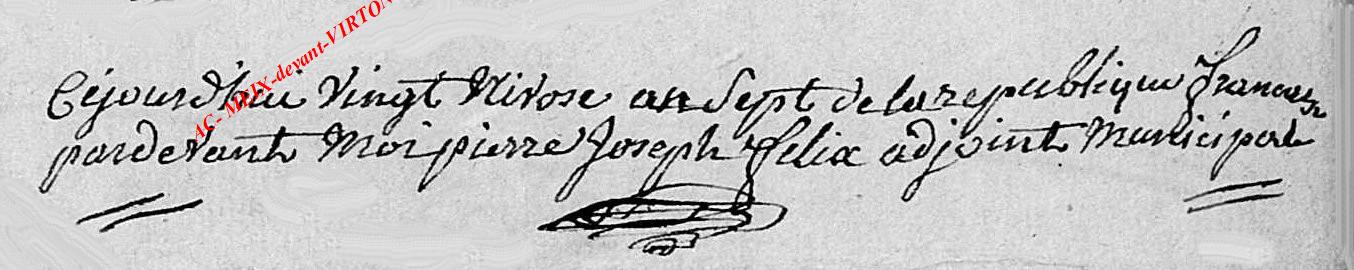 AC- MEIX-devant-VIRTON
Cejourd'hui vingt Nivose an Sept de la republique francaise
pardevant Moi pierre Joseph felix adjoint Municipal